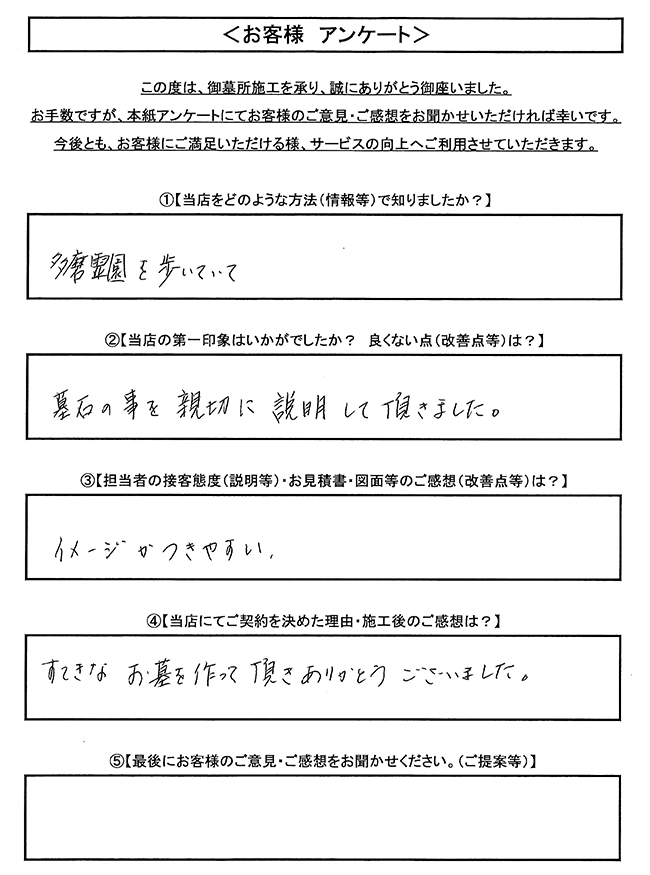 ＜お客様 アンケート＞
この度は、御墓所施工を承り、誠にありがとう御座いました。
お手数ですが、本紙アンケートにてお客様のご意見・ご感想をお聞かせいただければ幸いです。
今後とも、お客様にご満足いただける様、サービスの向上へご利用させていただきます。
①【当店をどのような方法（情報等）で知りましたか？】
多磨霊園を歩いていて
②【当店の第一印象はいかがでしたか？ 良くない点（改善点等）は？】
墓石の事を親切に説明して頂きました。
③【担当者の接客態度（説明等）・お見積書・図面等のご感想（改善点等）は？】
イメージがつきやすい。
④【当店にてご契約を決めた理由・施工後のご感想は？】
すてきなお墓を作って頂きありがとうございました。
⑤【最後にお客様のご意見・ご感想をお聞かせください。（ご提案等）】